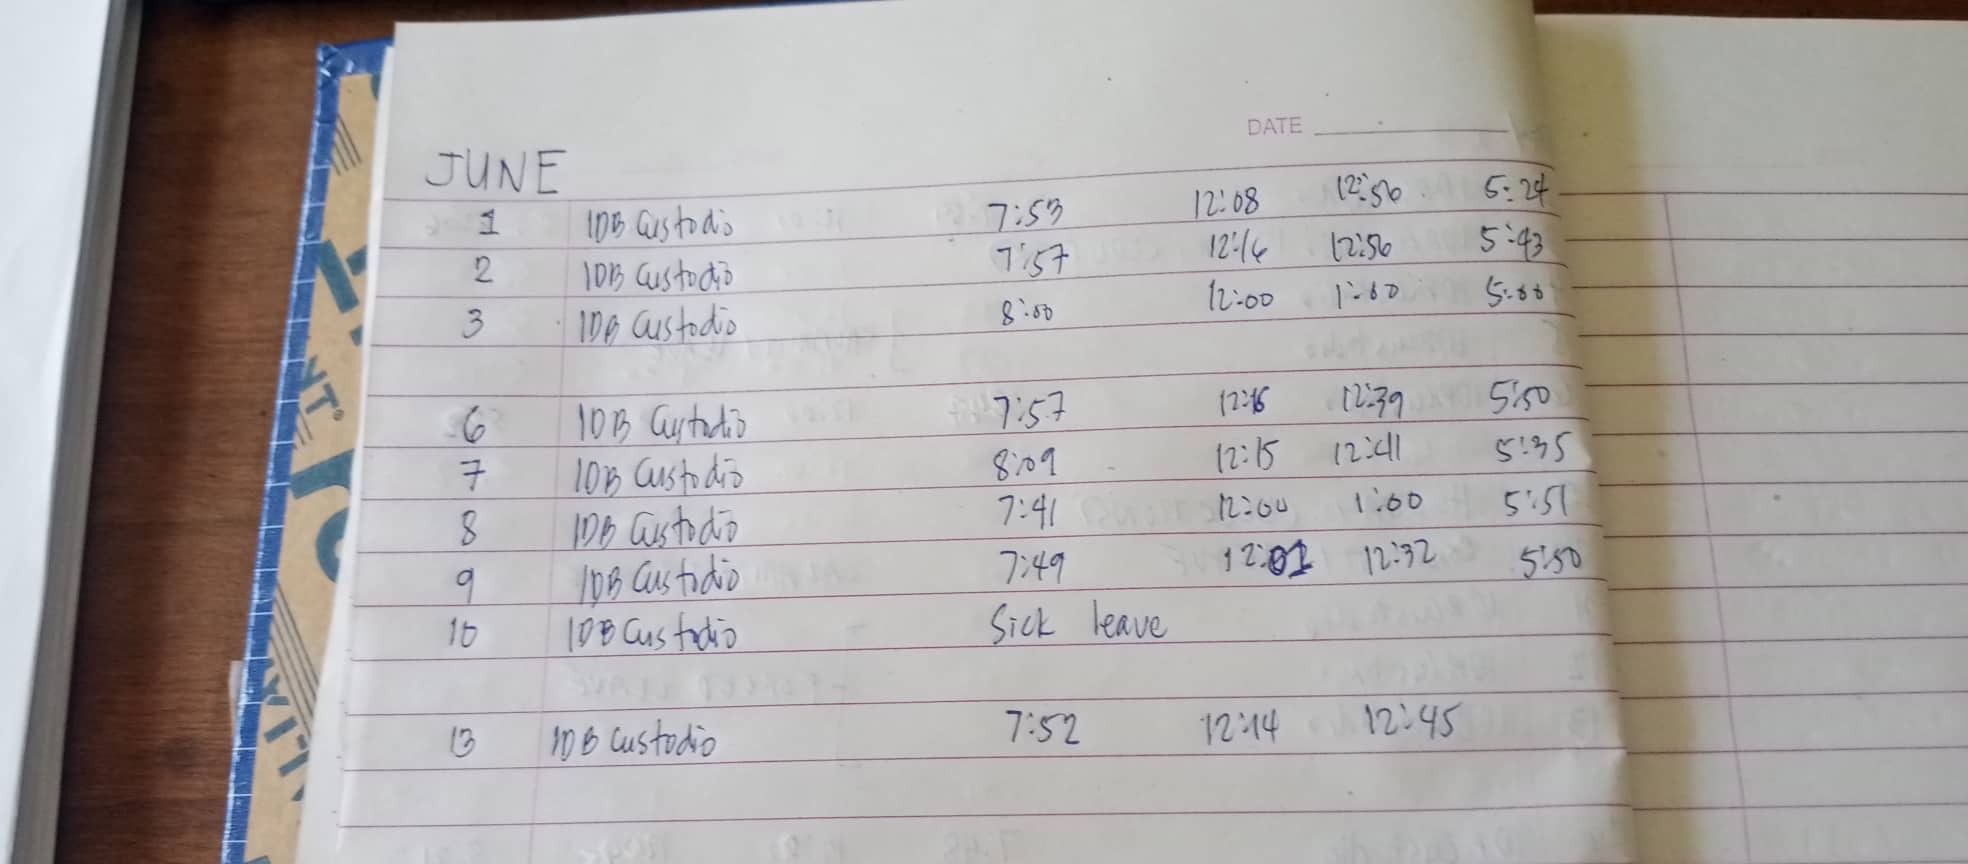 DATE
JUNE
1 IDB Custodio 7:53 12:08 12:56 5:24
2 IDB Custodio 7:57 12:16 12:56 5:43
3 IDB Custodio 8:00 12:00 1:00 5:00
6 IDB Custodio 7:57 12:16 12:39 5:50
7 IDB Custodio 8:09 12:15 12:41 5:35
8 IDB Custodio 7:41 12:00 1:00 5:51
9 IDB Custodio 7:49 12:01 12:32 5:50
10 IDB Custodio Sick leave
13 IDB Custodio 7:52 12:14 12:45